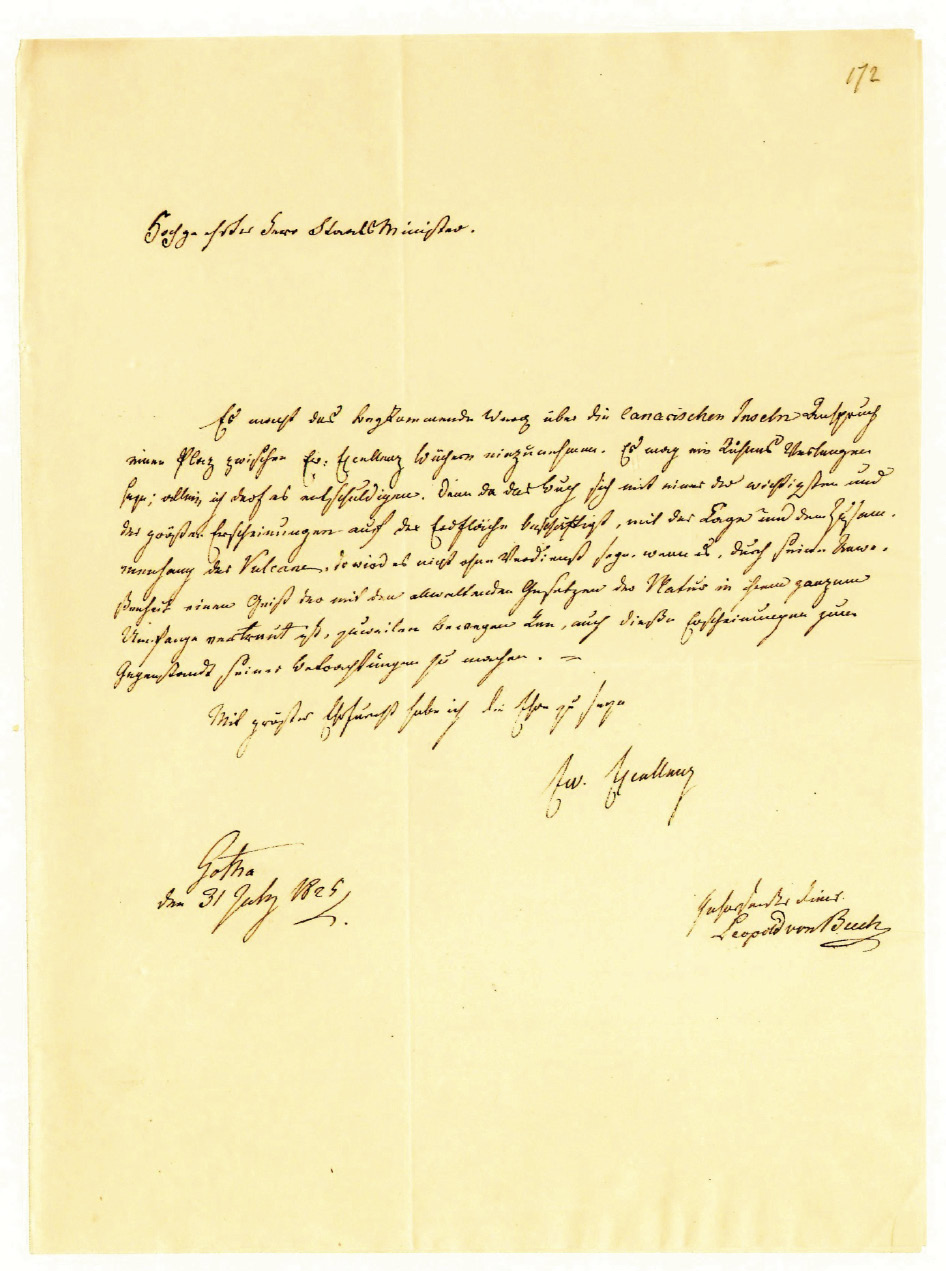 172
Hochgeehrter Herr StaatsMinister.
Es macht das beykommende Werck über die canarischen Inseln Anspruch
einen Plaz zwischen Ew: Excellenz Büchern einzunehmen. Es mag ein kühnes Verlangen
seyn; allein, ich darf es entschuldigen. Denn da das Buch sich mit einer der wichtigsten und
der größten Erscheinungen auf der Erdfläche beschäftigt, mit der Lage und dem Zusam-
menhang der Vulcane, so wird es nicht ohne Verdienst seyn wenn es, durch seine Anwe-
senheit einen Geist der mit den allwaltenden Gesetzen der Natur in ihrem ganzen
Umfange vertraut ist, zuweilen bewegen kan, auch diese Erscheinungen zum
Gegenstande seiner Betrachtungen zu machen. –
Mit größter Ehrfurcht habe ich die Ehre zu seyn
Ew. Excellenz
Gotha
den 31 July 1825.
gehorsamster Diener
Leopold von Buch